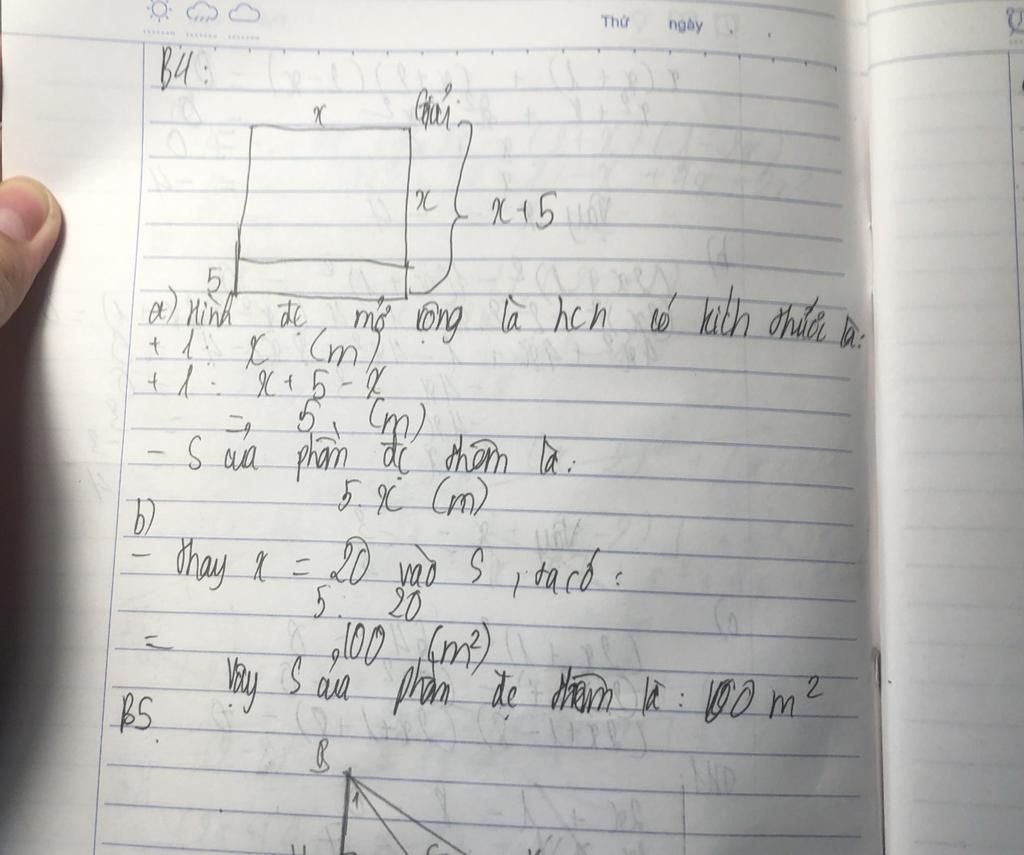 Thứ ngày
B4:
Giải
x
x
x + 5
5
a) Hình đc mở rộng là hcn có kích thước là:
+ 1: x (m)
+ 1: x + 5 - x
= 5 (m)
- S của phần đc thêm là:
5. x (m)
b)
- thay x = 20 vào S, ta có:
5. 20
= 100 (m²)
Vậy S của phần đc thêm là: 100 m²
B5.
B
1